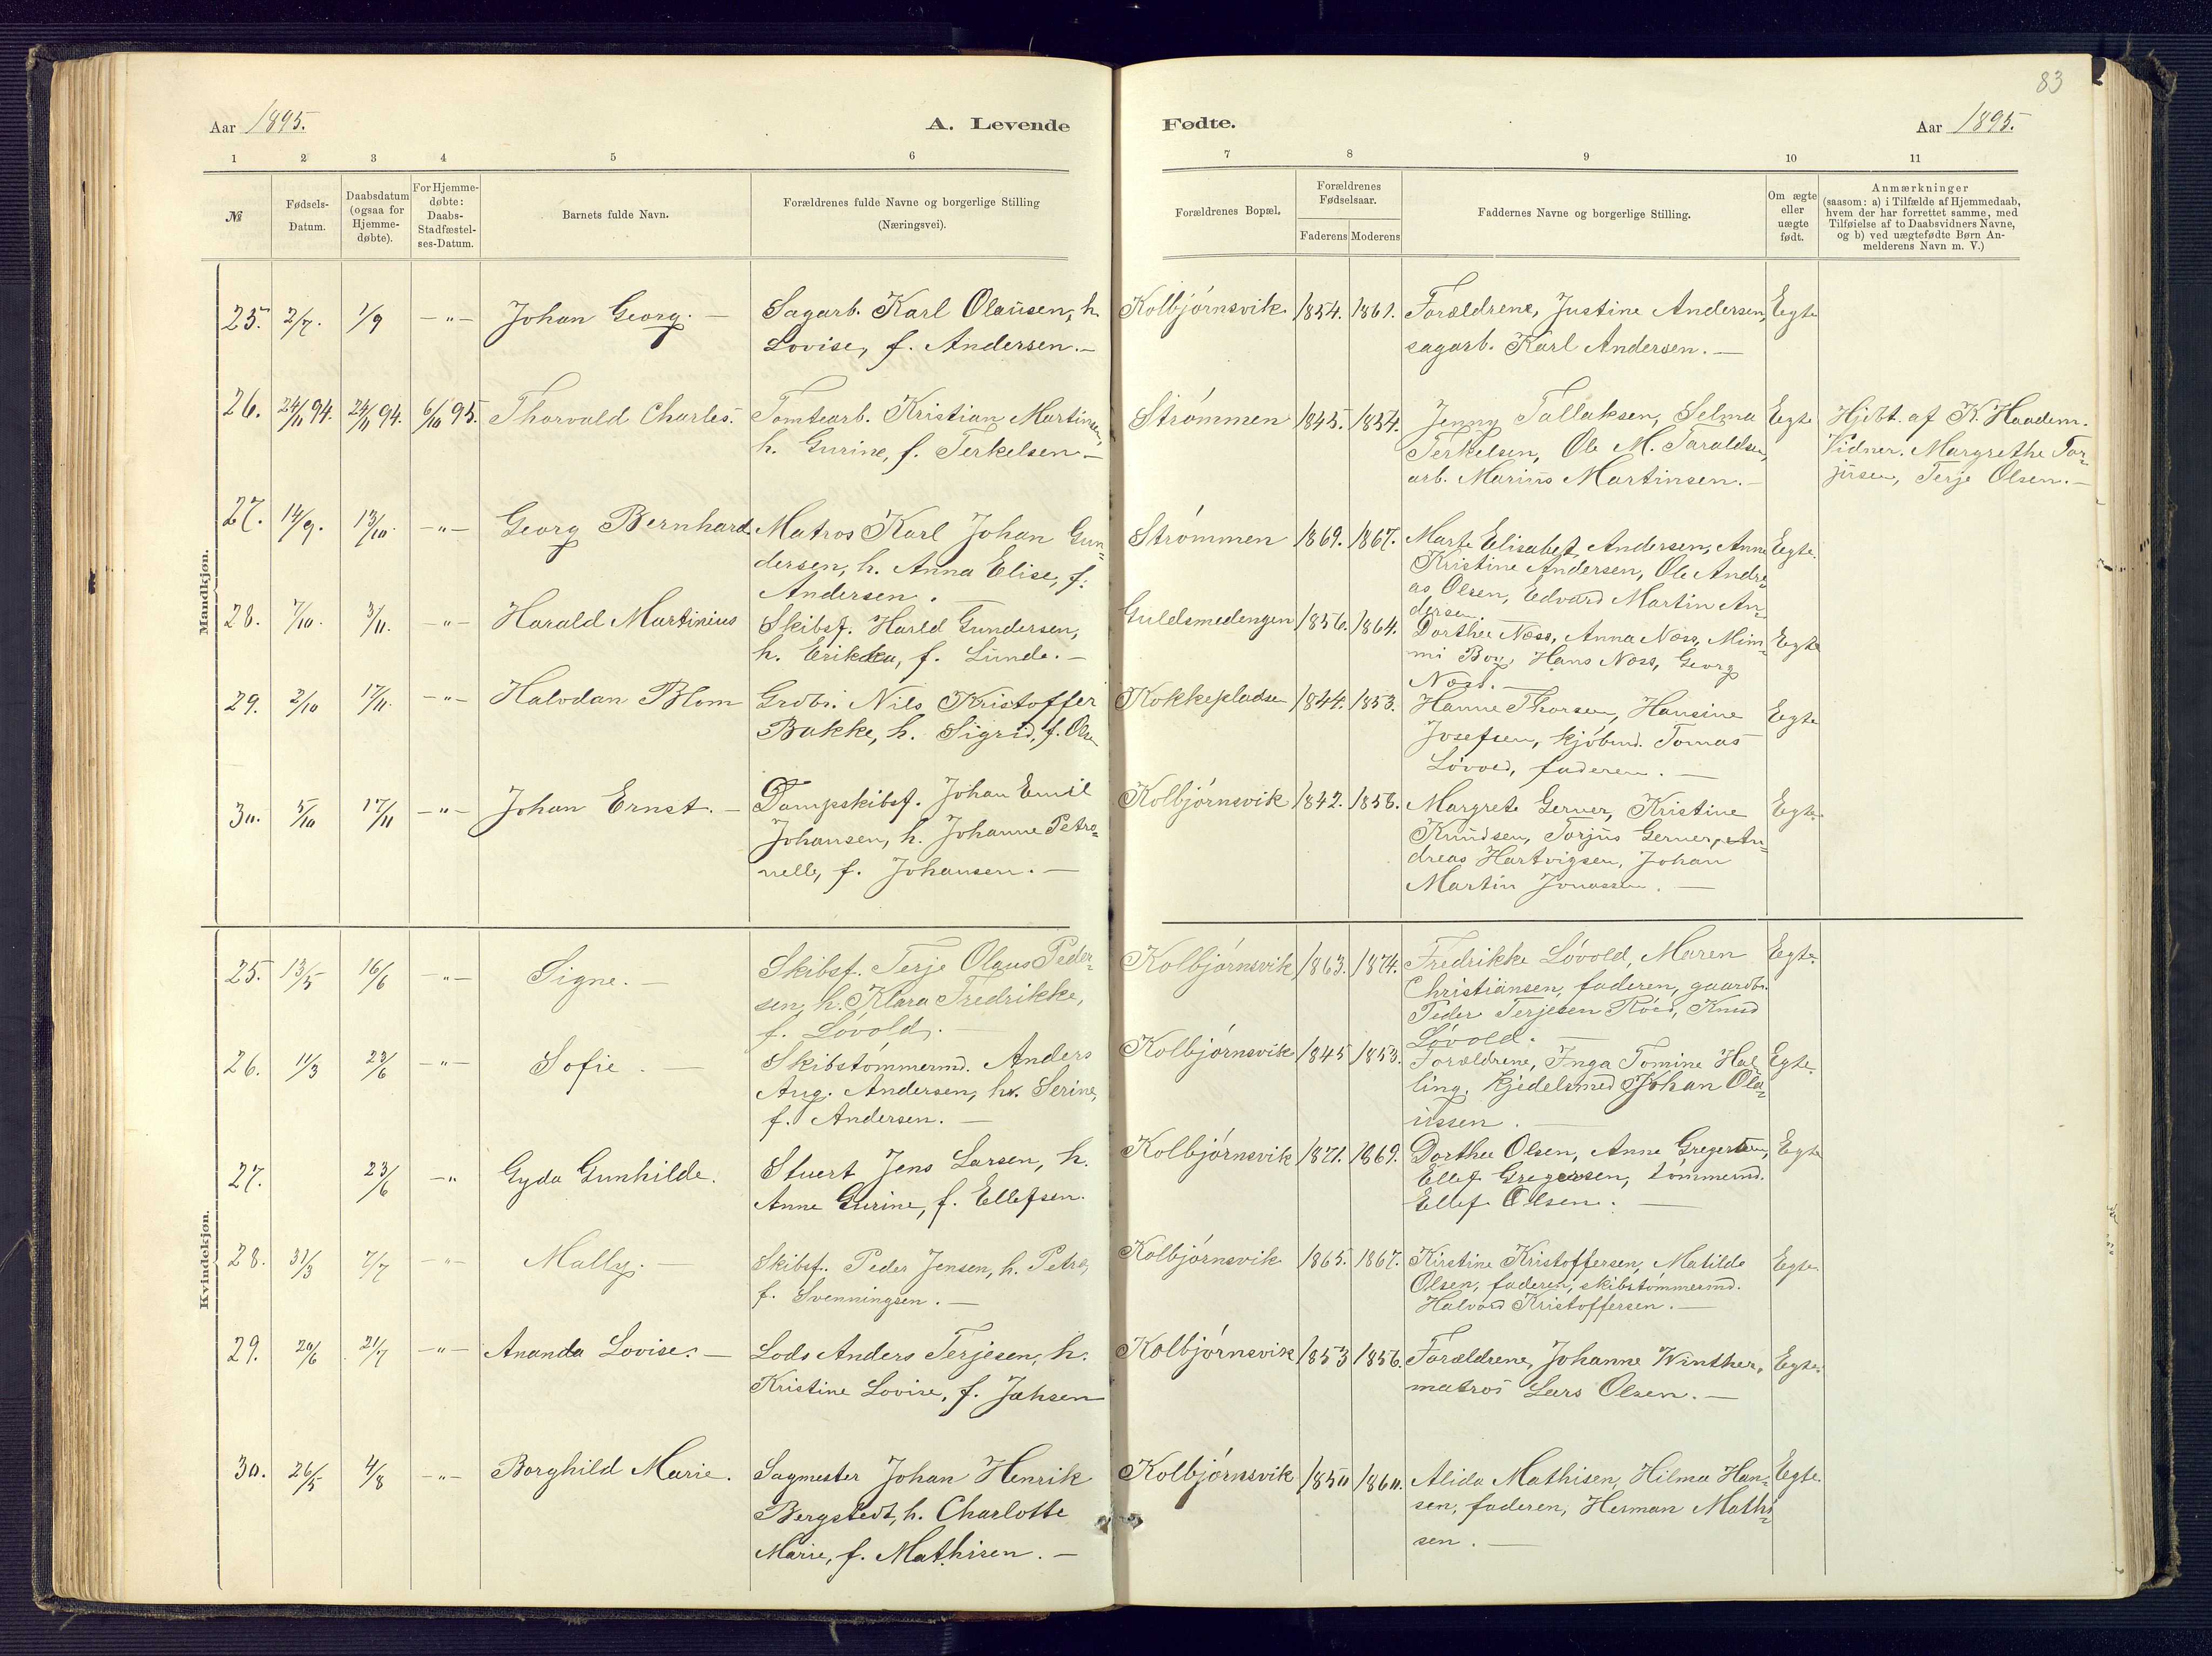 83
Aar 1895.
A. Levende
Fødte.
Aar 1895.
1 2 3 4 5 6 7 8 9 10 11
№
Fødsels-
Datum.
Daabsdatum
(ogsaa for
Hjemme-
døbte).
For Hjemme-
døbte:
Daabs-
Stadfæstel-
ses-Datum.
Barnets fulde Navn.
Forældrenes fulde Navne og borgerlige Stilling
(Næringsvei).
Forældrenes Bopæl.
Forældrenes
Fødselsaar.
Faderens Moderens
Faddernes Navne og borgerlige Stilling.
Om ægte
eller
uægte
født.
Anmærkninger
(saasom: a) i Tilfælde af Hjemmedaab,
hvem der har forrettet samme, med
Tilføielse af to Daabsvidners Navne,
og b) ved uægtefødte Børn An-
melderens Navn m. V.)
Mandkjøn.
25. 2/7. 1/9 -"- Johan Georg. -
Sagarb. Karl Olausen, h.
Lovise, f. Andersen. -
Kolbjörnsvik 1854. 1861.
Forældrene, Justine Andersen,
sagarb. Karl Andersen. -
Egte
26. 24/11 94. 24/11 94. 6/10 95. Thorvald Charles.
Tomtearb. Kristian Martinsen,
h. Gurine, f. Terkelsen -
Strömmen 1845. 1854.
Jenny Tallaksen, Selma
Terkelsen, Ole M. Taraldsen,
arb. Marius Martinsen. -
Egte
Hjdbt. af K. Haadem.
Vidner. Margrethe Tor-
jusen, Terje Olsen. -
27. 14/9. 13/10. -"- Georg Bernhard.
Matros Karl Johan Gun-
dersen, h. Anna Elise, f.
Andersen. -
Strömmen 1869. 1867.
Marte Elisabet Andersen, Anne
Kristine Andersen, Ole Andre-
as Olsen, Edvard Martin An-
dersen.
Egte.
28. 7/10. 3/11. -"- Harald Martinius
Skibsf. Harld Gundersen,
h. Erikka, f. Lunde. -
Guldsmedengen 1856. 1864.
Dorthea Næss, Anna Næss, Mim-
mi Boy, Hans Næss, Georg
Næss. -
Egte
29. 2/10 17/11. -"- Halvdan Blom
Grdbr. Nils Kristoffer
Bakke, h. Sigrid, f. Olsen
Kokkepladsen 1844. 1853.
Hanne Thorsen, Hansine
Josefsen, kjöbmd. Tomas
Lövold, faderen. -
Egte
30. 5/10 17/11 -"- Johan Ernst. -
Dampskibsf. Johan Emil
Johansen, h. Johanne Petro-
nelle, f. Johansen. -
Kolbjörnsvik 1842. 1856.
Margrete Gerner, Kristine
Knudsen, Torjus Gerner, An-
dreas Hartvigsen, Johan
Martin Jonassen. -
Egte.
Kvindekjøn.
25. 13/5 16/6 -"- Signe. -
Skibsf. Terje Olaus Peder-
sen, h. Klara Fredrikke,
f. Lövold. -
Kolbjörnsvik 1863. 1874.
Fredrikke Lövold, Maren
Christiansen, faderen, gaardbr.
Peder Terjesen Röed, Knud
Lövold. -
Egte.
26. 11/3 23/6 -"- Sofie. -
Skibstömmermd. Anders
Aug. Andersen, h. Serine,
f. Andersen. -
Kolbjörnsvik 1845 1853.
Forældrene, Inga Tomine Hal-
ling, kjedelsmed Johan Ola-
ussen. -
Egte.
27. 23/6 -"- Gyda Gunhilde.
Stuert Jens Larsen, h.
Anne Gurine, f. Ellefsen.
Kolbjörnsvik 1871. 1869.
Dorthea Olsen, Anne Gregersen,
Ellef Gregersen, tömmermd.
Ellef Olsen. -
Egte
28. 31/3 7/7 -"- Mally. -
Skibsf. Peder Jensen, h. Petra,
f. Svenningsen. -
Kolbjörnsvik 1865. 1867.
Kirstine Kristoffersen, Matilde
Olsen, faderen, skibstömmermd.
Halvord Kristoffersen. -
Egte
29. 20/6 21/7 -"- Ananda Lovise. -
Lods Anders Terjesen, h.
Kristine Lovise, f. Jahsen
Kolbjörnsvik 1853 1856.
Forældrene, Johanne Winther,
matros Lars Olsen. -
Egte.
30. 26/5 4/8 -"- Borghild Marie.
Sagmester Johan Henrik
Bergstedt, h. Charlotte
Marie, f. Mathisen. -
Kolbjörnsvik 1850 1860.
Alida Mathisen, Hilma Han-
sen, faderen, Herman Mathi-
sen. -
Egte.